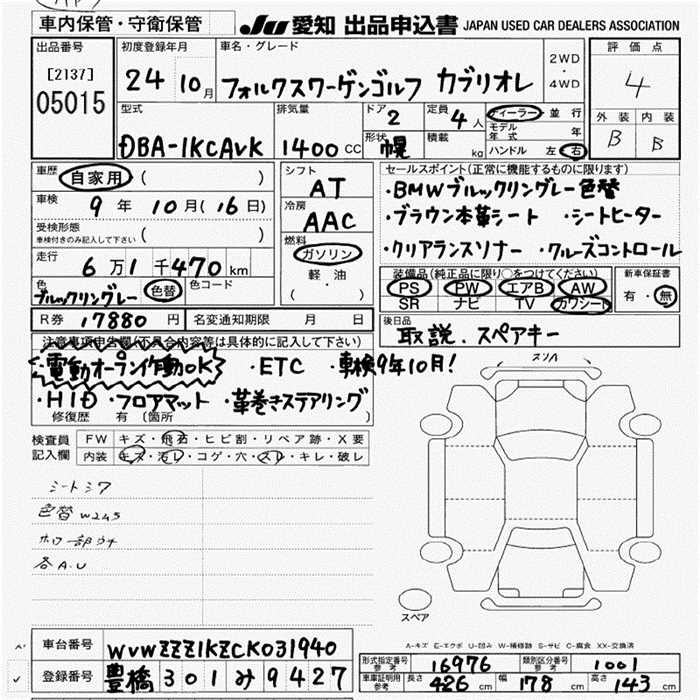 車内保管・守衛保管
JU 愛知 出品申込書 JAPAN USED CAR DEALERS ASSOCIATION
出品番号
[2137]
05015
初度登録年月
24 10月
車名・グレード
フォルクスワーゲンゴルフ カブリオレ
2WD
・
4WD
評価点
4
外装 内装
B B
型式
DBA-1KCAVK
排気量
1400 CC
ドア
2
形状
幌
定員
4人
積載
kg
ディーラー・並行
モデル年式 年
ハンドル 左・右
車歴 自家用 ( )
車検 9年 10月(16日)
受検形態
車検付きのみ記入して下さい ( )
走行 6万1千470km
色
ブルックリングレー 色替
色コード
R券 17880 円
名変通知期限 月 日
シフト
AT
冷房
AAC
燃料
ガソリン
軽油
( )
セールスポイント(正常に機能するものに限ります)
・BMWブルックリングレー色替
・ブラウン本革シート ・シートヒーター
・クリアランスソナー ・クルーズコントロール
装備品(純正品に限り○をつけてください)
PS PW エアB AW
SR ナビ TV カワシート
新車保証書
有・無
後日品
取説、スペアキー
注意事項申告欄(不具合内容等は具体的に記入して下さい)
・電動オープン作動OK ・ETC ・車検9年10月!
・HID ・フロアマット ・革巻きステアリング
修復歴 有 〔箇所 〕
検査員
記入欄
FW キズ・飛石・ヒビ割・リペア跡・X要
内装 キズ・汚レ・コゲ・穴・スレ・キレ・破レ
シートシワ
色替 W245
各A.U
スペア
A-キズ E-エクボ U-凹み W-補修跡 S-サビ C-腐食 XX-交換済
車台番号 WVWZZZ1KZCK031940
登録番号 豊橋 301 み 9427
形式指定番号
参考
16976
類別区分番号
参考
1001
車庫証明用
参考
長さ 426 cm 幅 178 cm 高さ 143 cm